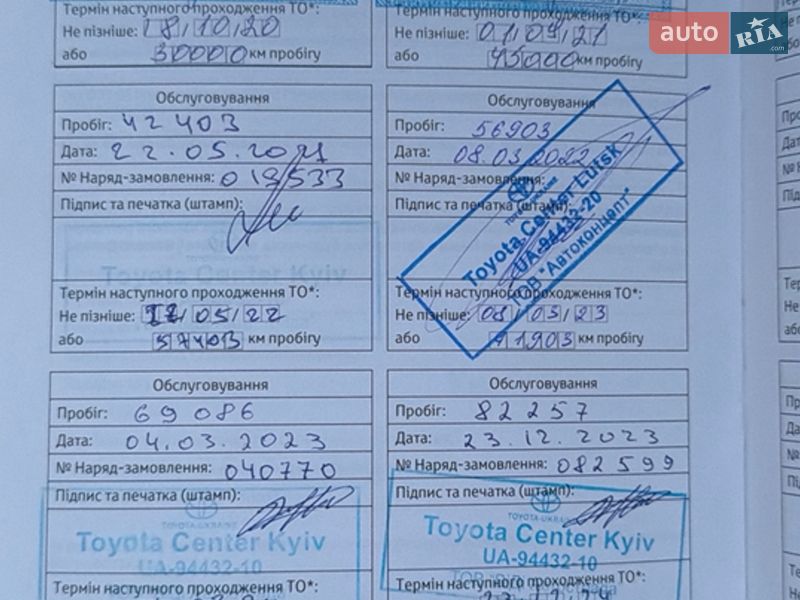 Термін наступного проходження ТО*:
Не пізніше: 18/10/20
або 30000 км пробігу
Термін наступного проходження ТО*:
Не пізніше: 01/09/21
або 45000 км пробігу
auto RIA.com
Обслуговування
Пробіг: 42403
Дата: 22.05.2021
№ Наряд-замовлення: 019533
Підпис та печатка (штамп):
Toyota Center Kyiv
Термін наступного проходження ТО*:
Не пізніше: 22/05/22
або 57403 км пробігу
Обслуговування
Пробіг: 56903
Дата: 08.03.2022
№ Наряд-замовлення:
Підпис та печатка (штамп):
Toyota Center Lutsk
UA-94432-20
ТОВ "Автоконцепт"
Термін наступного проходження ТО*:
Не пізніше: 08/03/23
або 71903 км пробігу
Обслуговування
Пробіг: 69086
Дата: 04.03.2023
№ Наряд-замовлення: 040770
Підпис та печатка (штамп):
TOYOTA-UKRAINE
Toyota Center Kyiv
UA-94432-10
Термін наступного проходження ТО*:
Обслуговування
Пробіг: 82257
Дата: 23.12.2023
№ Наряд-замовлення: 082599
Підпис та печатка (штамп):
TOYOTA-UKRAINE
Toyota Center Kyiv
UA-94432-10
Термін наступного проходження ТО*: